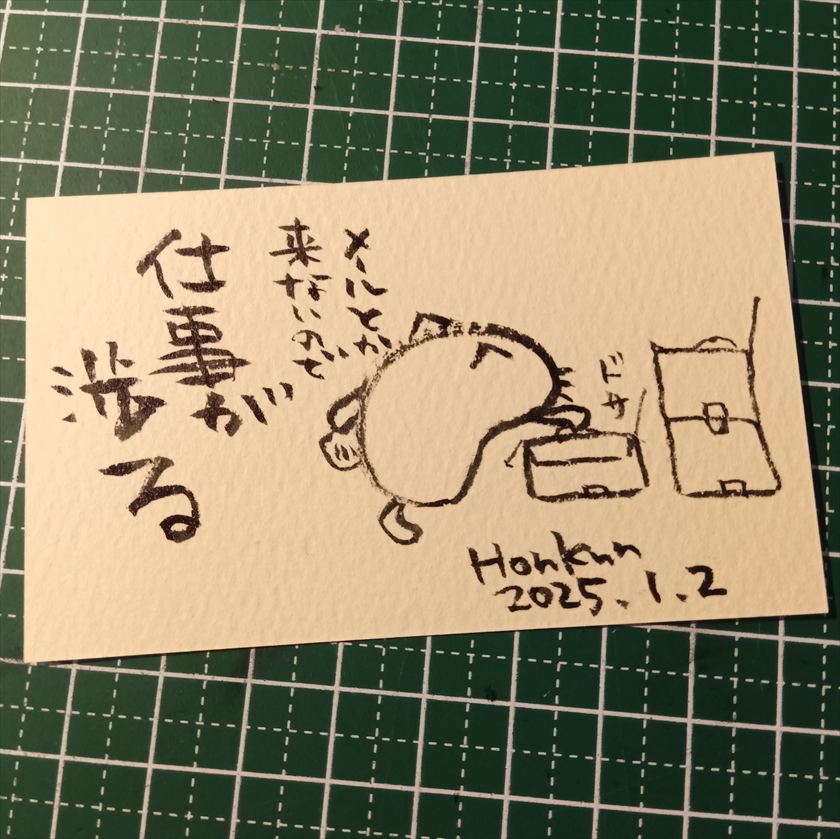 ドサ
メールとか
来ないので
仕事が
渉る
Honkun
2025.1.2